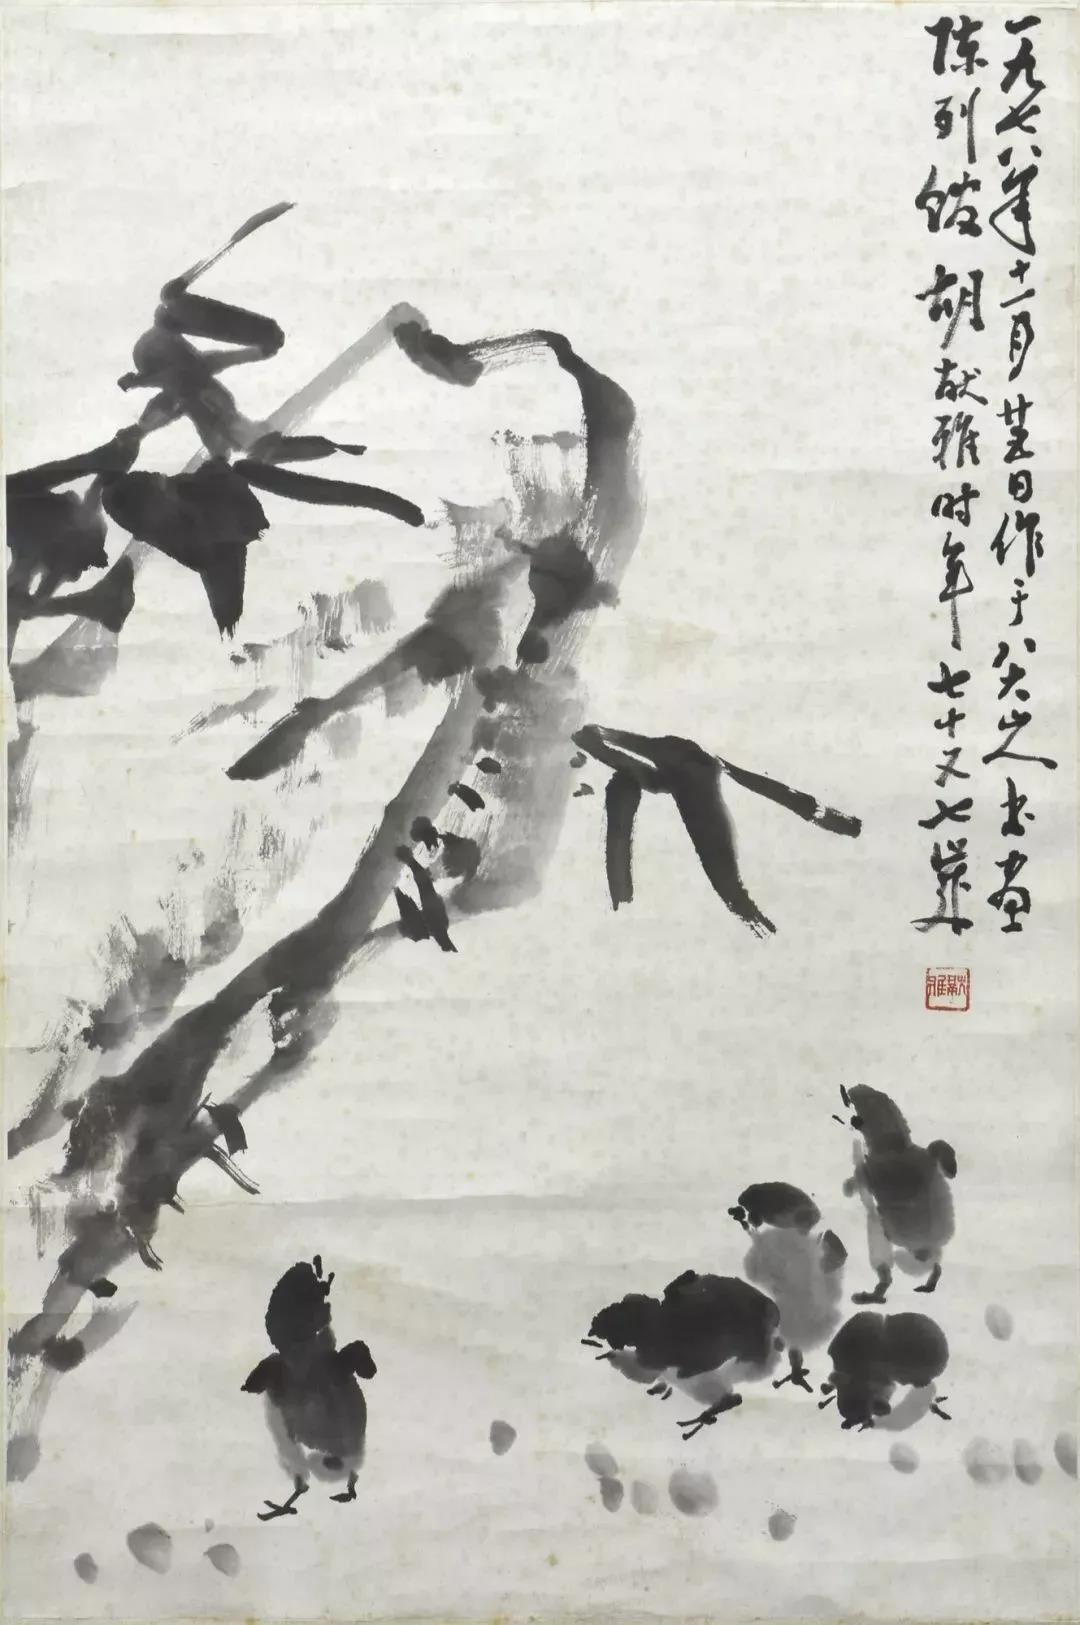 一九七八年十一月廿五日作于八大山人书画
陈列馆 胡献雅时年七十又七岁
献雅